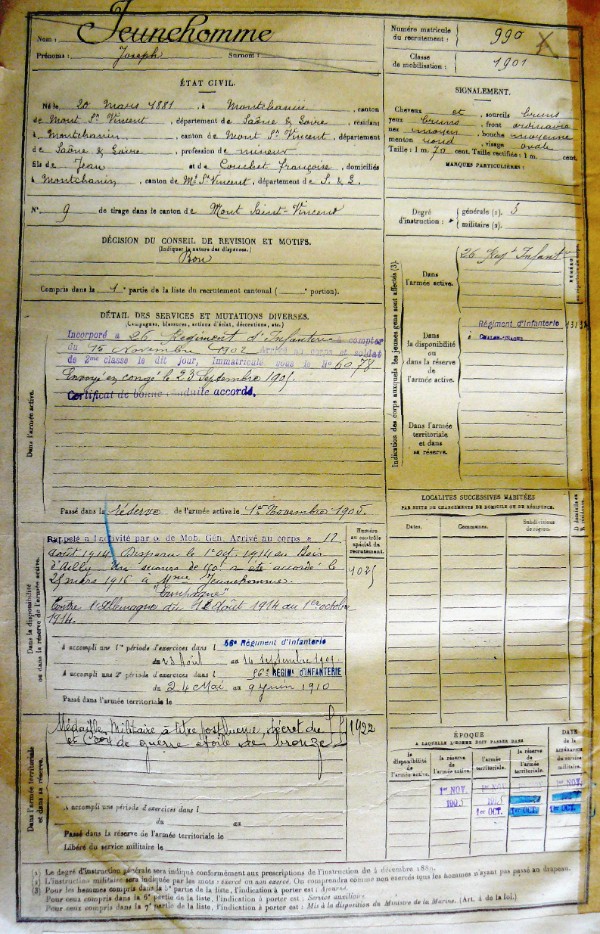 Nom : Jeunehomme
Prénoms : Joseph Surnom :
Numéro matricule du recrutement : 990
Classe de mobilisation : 1901
ÉTAT CIVIL.
Né le 20 Mars 1881, à Montchanin, canton
de Mont St Vincent, département de Saône & Loire, résidant
à Montchanin, canton de Mont St Vincent, département
de Saône & Loire, profession de mineur
fils de Jean et de Couchet françoise, domiciliés
à Montchanin, canton de Mt St Vincent, département de S. & L.
N° 9 de tirage dans le canton de Mont Saint-Vincent
SIGNALEMENT.
Cheveux et sourcils bruns
yeux bruns, front ordinaire
nez moyen, bouche moyenne
menton rond, visage ovale
Taille : 1 m. 70 cent. Taille rectifiée : 1 m. cent.
MARQUES PARTICULIÈRES :
Degré d'instruction : générale (1). 3
militaire (2).
DÉCISION DU CONSEIL DE REVISION ET MOTIFS.
(Indiquer la nature des dispenses.)
Bon
Compris dans la 1e partie de la liste du recrutement cantonal ( portion).
DÉTAIL DES SERVICES ET MUTATIONS DIVERSES.
(Campagnes, blessures, actions d'éclat, décorations, etc.)
Dans l'armée active.
Incorporé à 26e Régiment d'Infanterie à compter
du 15 Novembre 1902 Arrivé au corps et soldat
de 2me classe le dit jour, Immatriculé sous le No 6078
Envoyé en congé le 23 Septembre 1905
Certificat de bonne conduite accordé.
Passé dans la réserve de l'armée active le 1er Novembre 1905.
Indication des corps auxquels les jeunes gens sont affectés (3).
Dans l'armée active.
26 Regt Infantie
Dans la disponibilité ou dans la réserve de l'armée active.
Régiment d'Infanterie
Dans l'armée territoriale et dans sa réserve.
LOCALITÉS SUCCESSIVES HABITÉES
PAR SUITE DE CHANGEMENTS DE DOMICILE OU DE RÉSIDENCE.
Dates. Communes. Subdivisions de région.
Dans la disponibilité ou dans la réserve de l'armée active.
Numéro au contrôle spécial du recrutement.
Rappelé à l'activité par o. de Mob. Gén. Arrivé au corps le 12
août 1914. Disparu le 1er oct. 1914 au Bois
d'Ailly. Un secours de 150f a été accordé le
25 mars 1916 à Mme Jeunehomme.
"Campagne"
Contre l'Allemagne du 12 Août 1914 au 1er octobre
1914.
A accompli une 1re période d'exercices dans l 56e Régiment d'Infanterie
du 18 Août au 14 septembre 1908
A accompli une 2e période d'exercices dans l 56e RÉGIMt D'INFANTERIE
du 24 Mai au 9 juin 1910
Passé dans l'armée territoriale le
Dans l'armée territoriale et dans sa réserve.
Médaille Militaire à titre posthume, décret du 1922
et Croix de guerre étoile de bronze
A accompli une période d'exercices dans l
du au
Passé dans la réserve de l'armée territoriale le
Libéré du service militaire le
ÉPOQUE
A LAQUELLE L'HOMME DOIT PASSER DANS
la disponibilité de l'armée active. la réserve de l'armée active. l'armée territoriale. la réserve de l'armée territoriale.
DATE de la libération du service militaire.
1er NOV. 1er NOV. 1er NOV.
1905
1er OCT. 1er OCT. 1er OCT.
(1) Le degré d'instruction générale sera indiqué conformément aux prescriptions de l'instruction du 4 décembre 1889.
(2) L'instruction militaire sera indiquée par les mots : exercé ou non exercé. On comprendra comme non exercés tous les hommes n'ayant pas passé au drapeau.
(3) Pour les hommes compris dans la 5e partie de la liste, l'indication à porter est : Ajourné.
Pour ceux compris dans la 6e partie de la liste, l'indication à porter est : Service auxiliaire.
Pour ceux compris dans la 7e partie de la liste, l'indication à porter est : Mis à la disposition du Ministre de la Marine. (Art. 4 de la loi.)